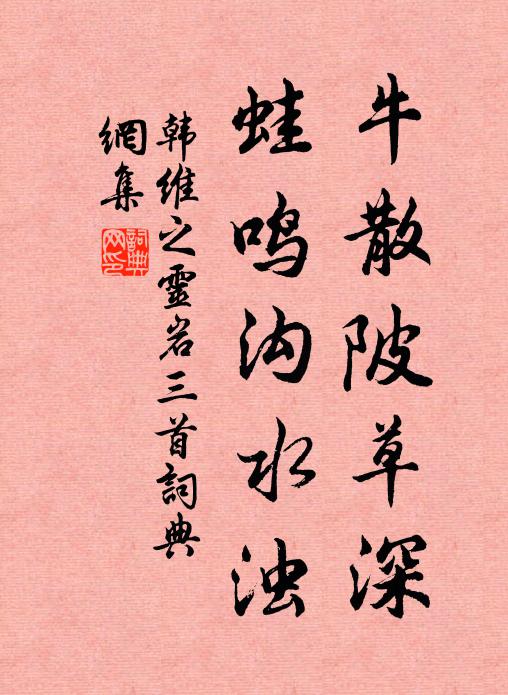 牛散陂草深
蛙鸣沟水浊
韩維之靈岩三首詞典
網集
詞典网印